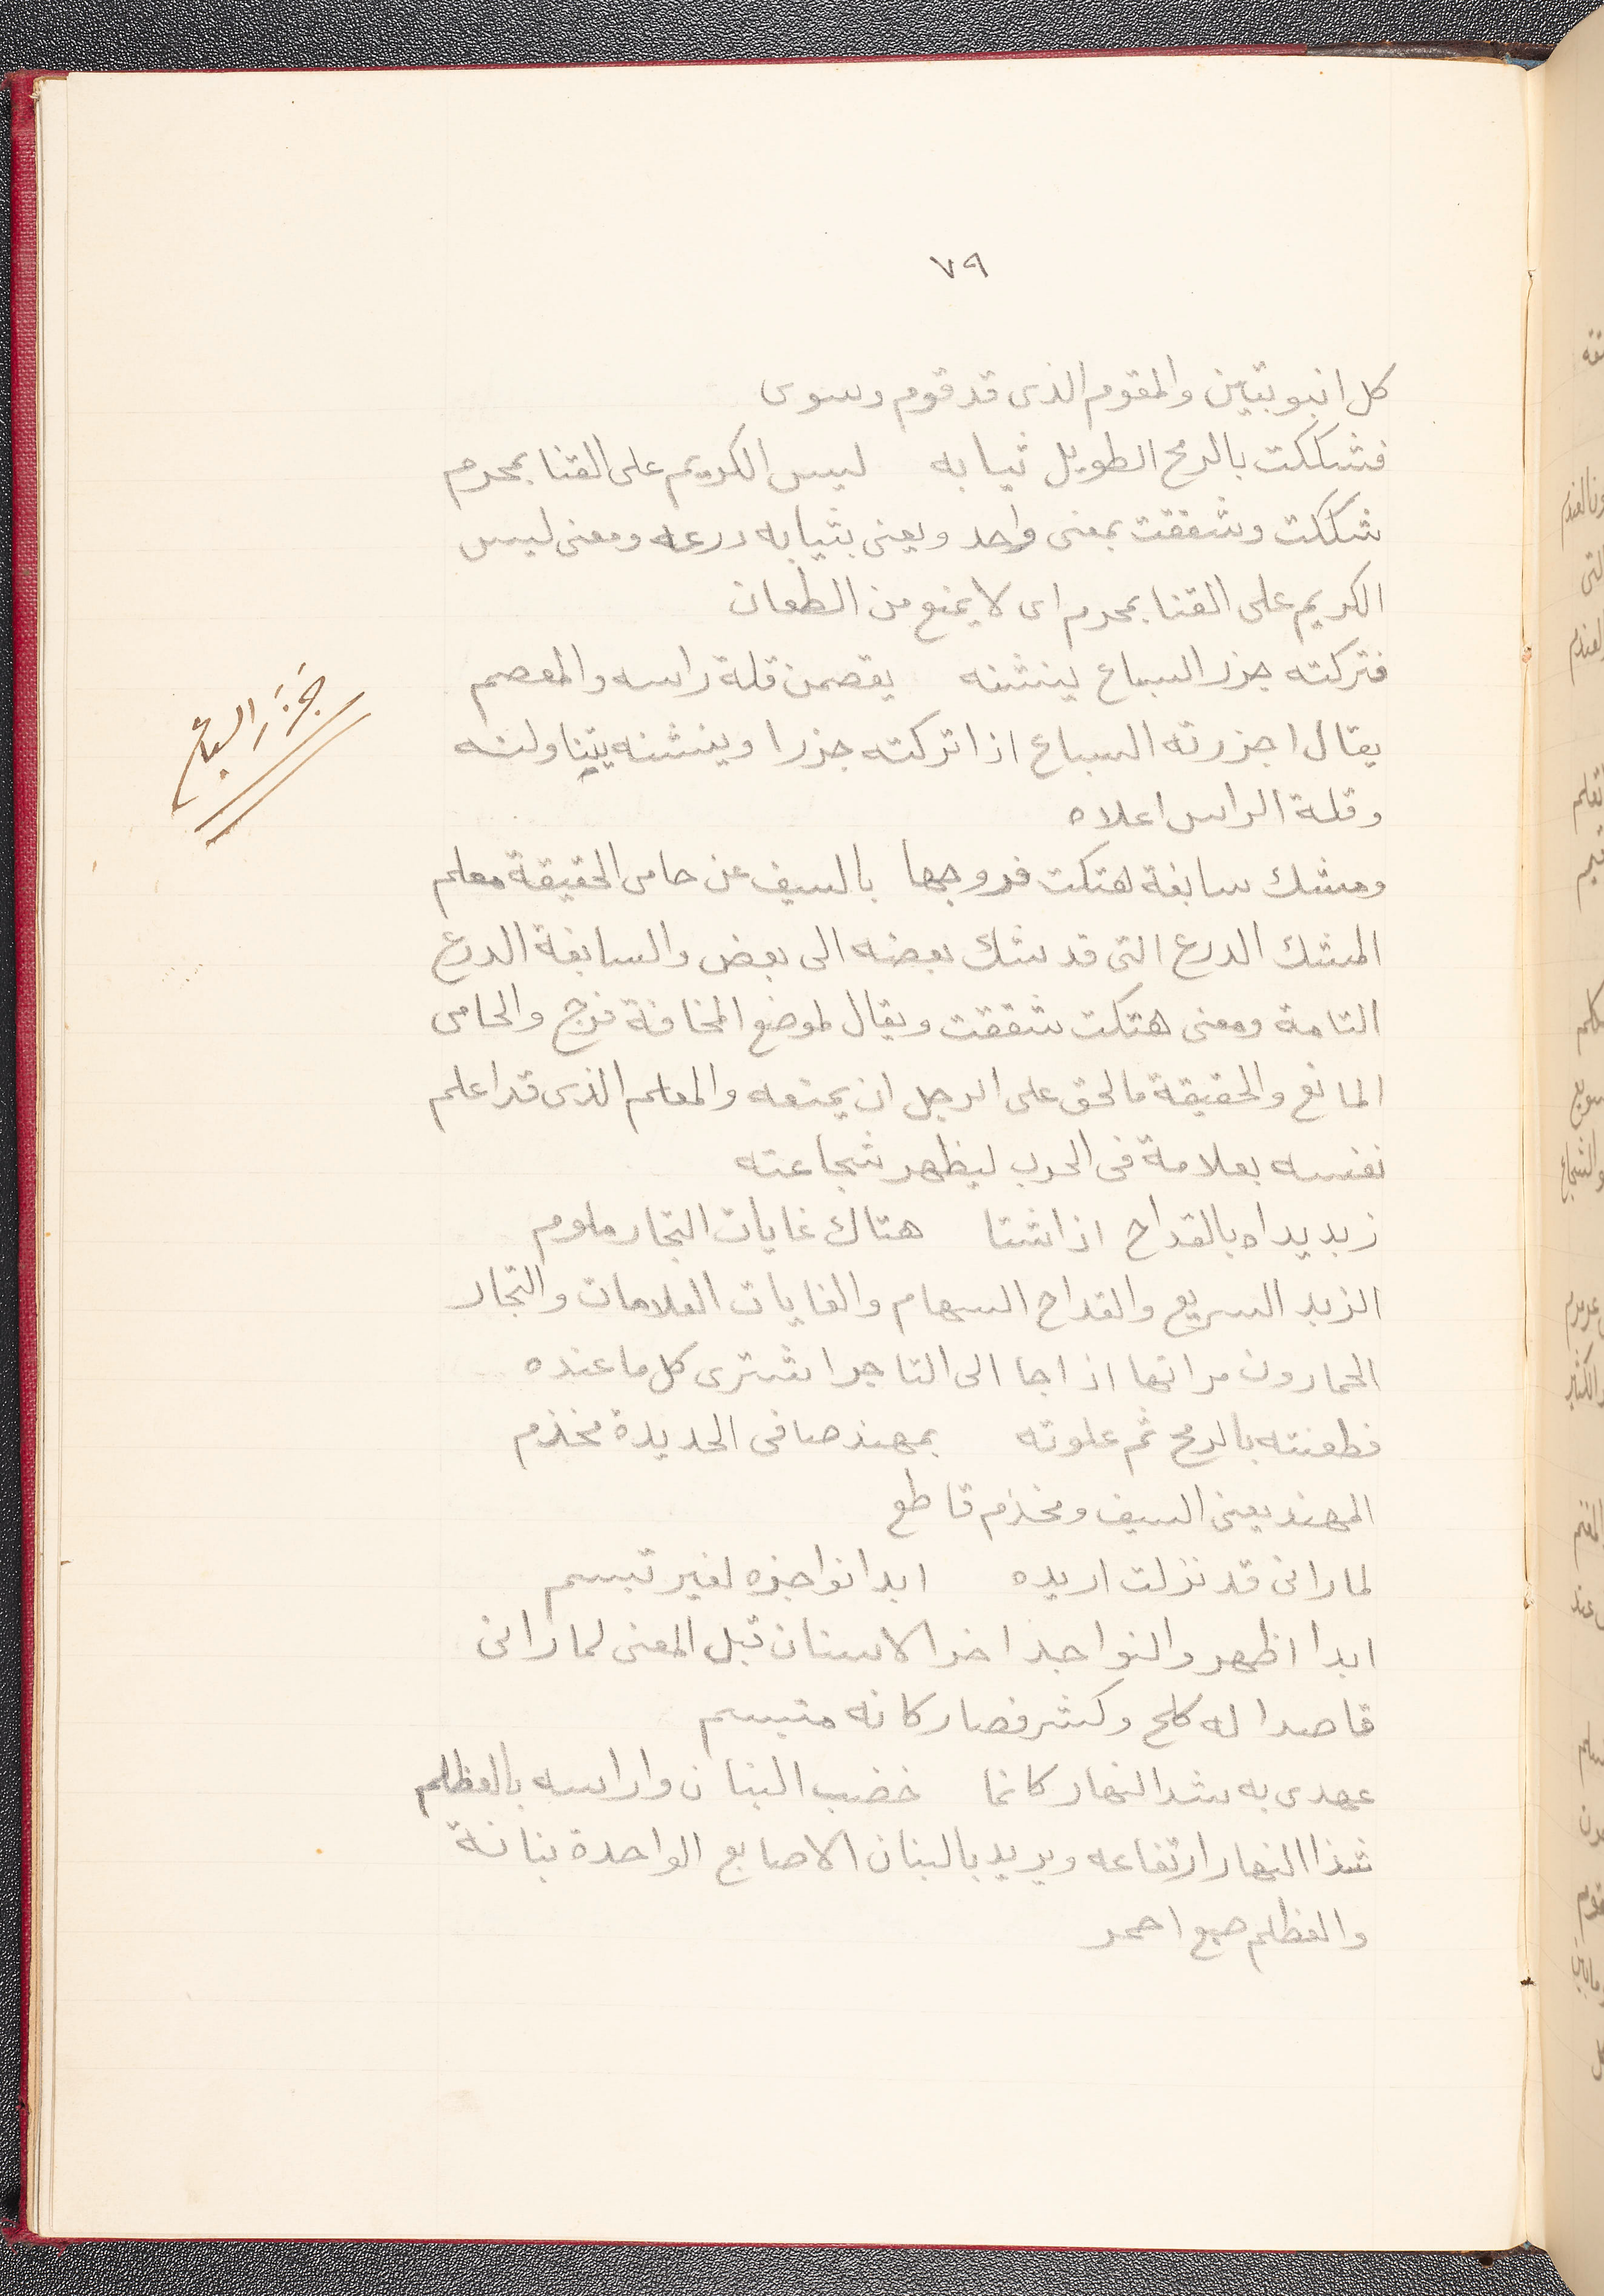 ٧٩
كل انبوبتين والمقوم الذى قد قوم وسوى
فشككت بالرمح الطويل ثيابه ليس الكريم على القنا بمحرم
شككت وشققت بمعنى واحد ويعنى بثيابه درعه ومعنى ليس
الكريم على القنا بمحرم اى لا يمنع من الطعان
فتركته جزر السباع ينشنه يقصمن قلة راسه والمعصم
جَزَرَ السباع
يقال اجزرته السباع اذا تركته جزرا وينشنه يتناولنه
وقلة الراس اعلاه
ومشك سابغة هتكت فروجها بالسيف عن حامى الحقيقة معلم
المشك الدرع التى قد شك بعضه الى بعض والسابغة الدرع
التامة ومعنى هتكت شققت ويقال لموضع المخافة فرج والحامى
المانع والحقيقة مالحق على الرجل ان يمنعه والمعلم الذى قد اعلم
نفسه بعلامة فى الحرب ليظهر شجاعته
زبد يداه بالقداح اذا شتا هتاك غايات التجار ملوم
الزبد السريع والقداح السهام والغايات العلامات والتجار
الخمارون مراتها اذا جا الى التاجر اشترى كل ما عنده
فطعنته بالرمح ثم علوته بمهند صافى الحديدة مخذم
المهند يعنى السيف ومخذم قاطع
لما رانى قد نزلت اريده ابدا نواجذه لغير تبسم
ابدا اظهر والنواجذ اخر الاسنان قبل المعنى لما رانى
قاصدا له كلح وكشر فصار كانه متبسم
عهدى به شد النهار كانما خضب البنان وراسه بالعظلم
شذا النهار ارتفاعه ويريد بالبنان الاصابع الواحدة بنانة
والعظلم صبع احمر